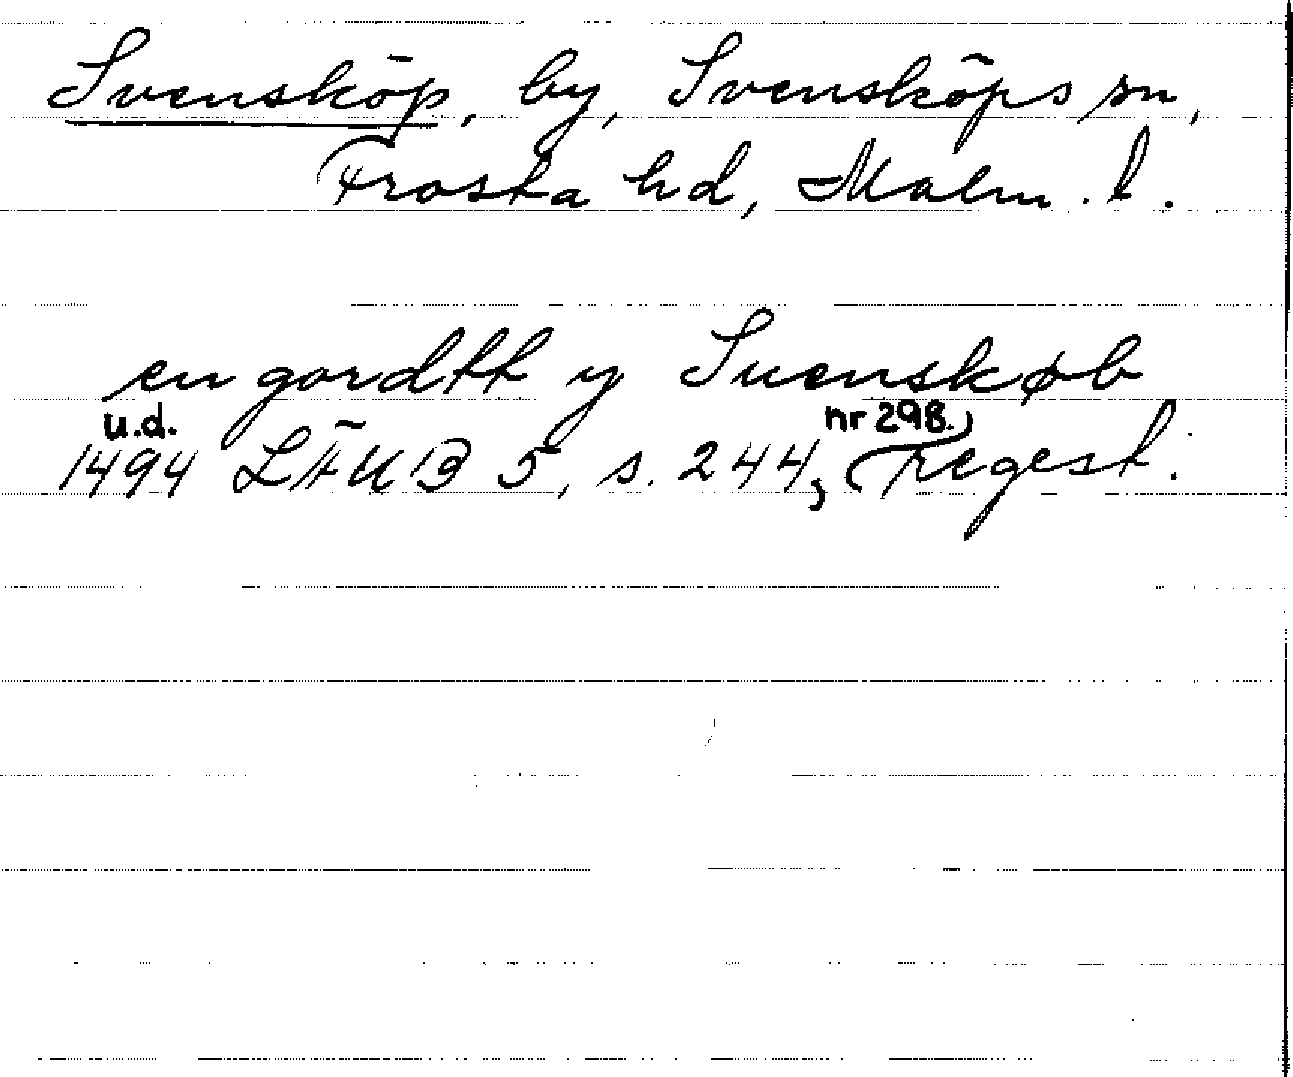 Svensköp, by, Svensköps sn,
Frosta hd, Malm. l.
en gordtt y Suenskøb
u.d. nr 298.)
1494 LÄUB 5, s. 244, (regest.